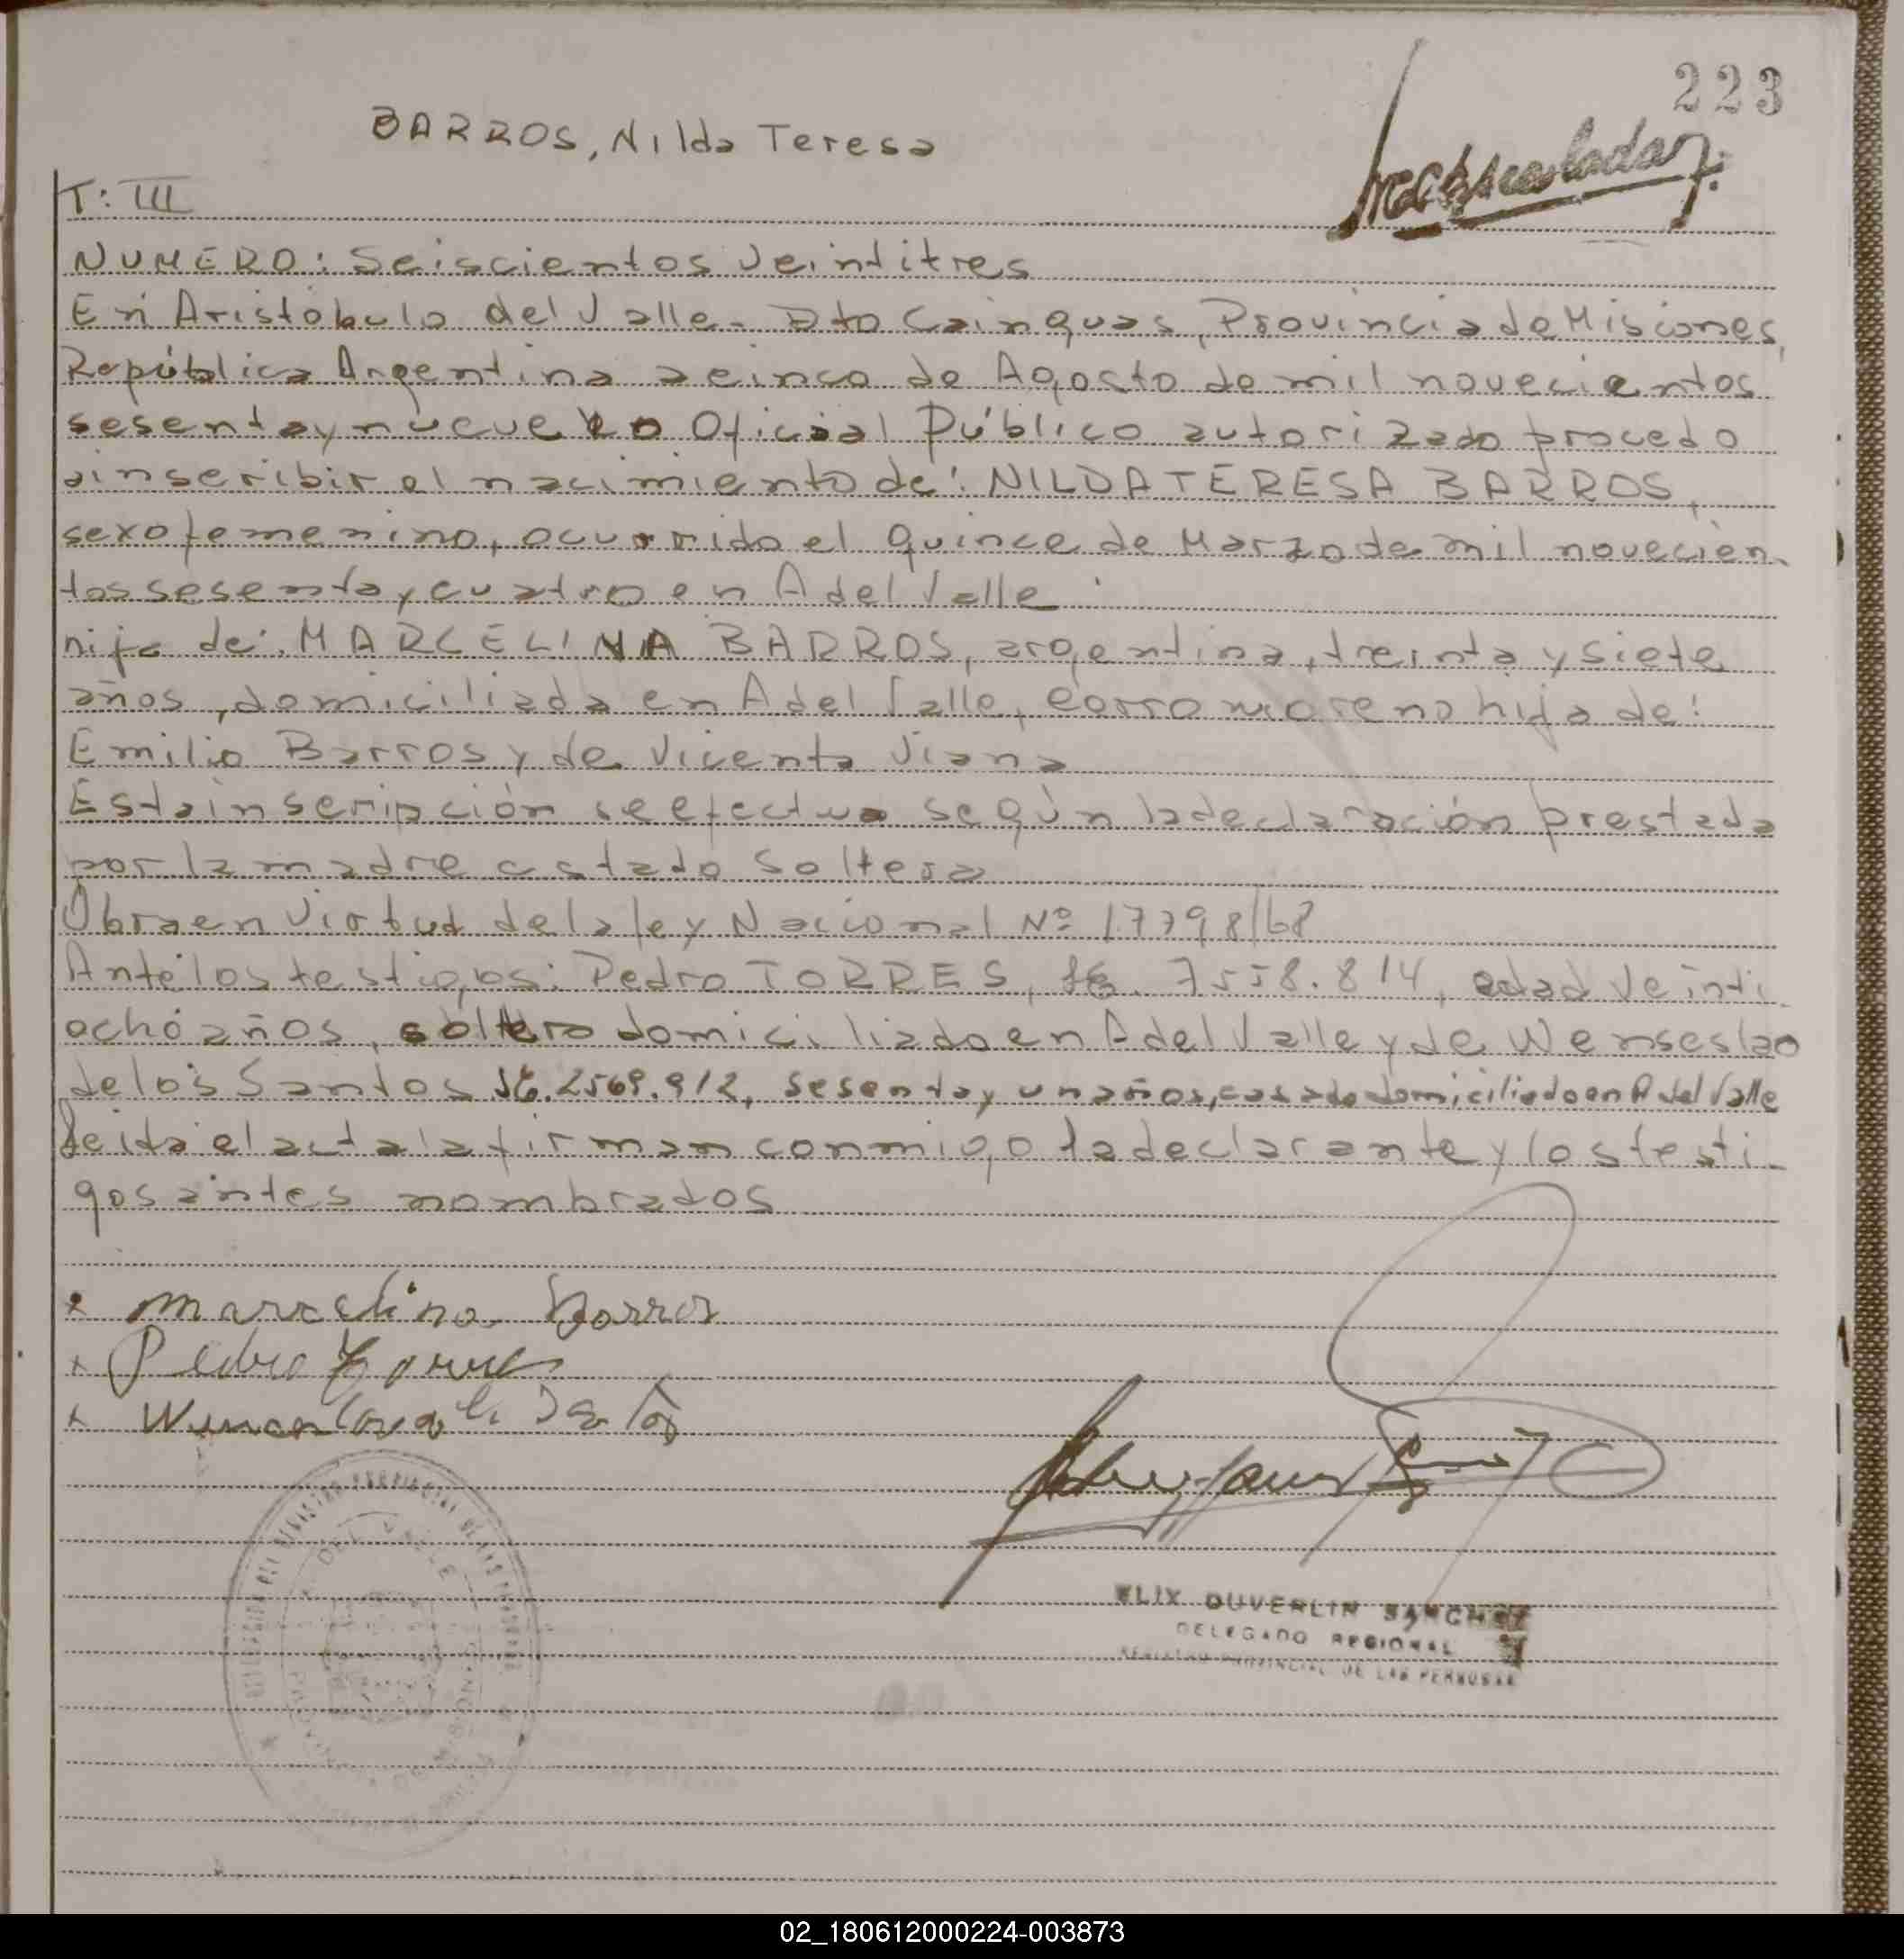 223
BARROS, Nilda Teresa
T: III
NUMERO: Seiscientos Veintitres
En Aristóbulo del Valle - Dto Cainguas, Provincia de Misiones,
República Argentina a cinco de Agosto de mil novecientos
sesenta y nueve yo Oficial Público autorizado procedo
a inscribir el nacimiento de: NILDA TERESA BARROS,
sexo femenino, ocurrido el quince de Marzo de mil novecien-
tos sesenta y cuatro en A del Valle
hija de: MARCELINA BARROS, argentina, treinta y siete
años, domiciliada en A del Valle, Cerro moreno hija de:
Emilio Barros y de Vicenta Viana
Esta inscripción se efectua según la declaración prestada
por la madre estado Soltera
Obra en Virtud de la ley Nacional Nº 17798/68
Ante los testigos: Pedro TORRES, 7558.814, edad Veinti
ocho años, soltero domiciliado en A del Valle y de Wenseslao
de los Santos 2569.912, sesenta y un años, casado domiciliado en A del Valle
Leida el acta la firman conmigo la declarante y los testi-
gos antes nombrados
x Marcelina Barros
x Pedro Torres
x
DEL VALLE
ELIX DUVERLIN SANCHEZ
DELEGADO REGIONAL
REGISTRO PROVINCIAL DE LAS PERSONAS
02_180612000224-003873